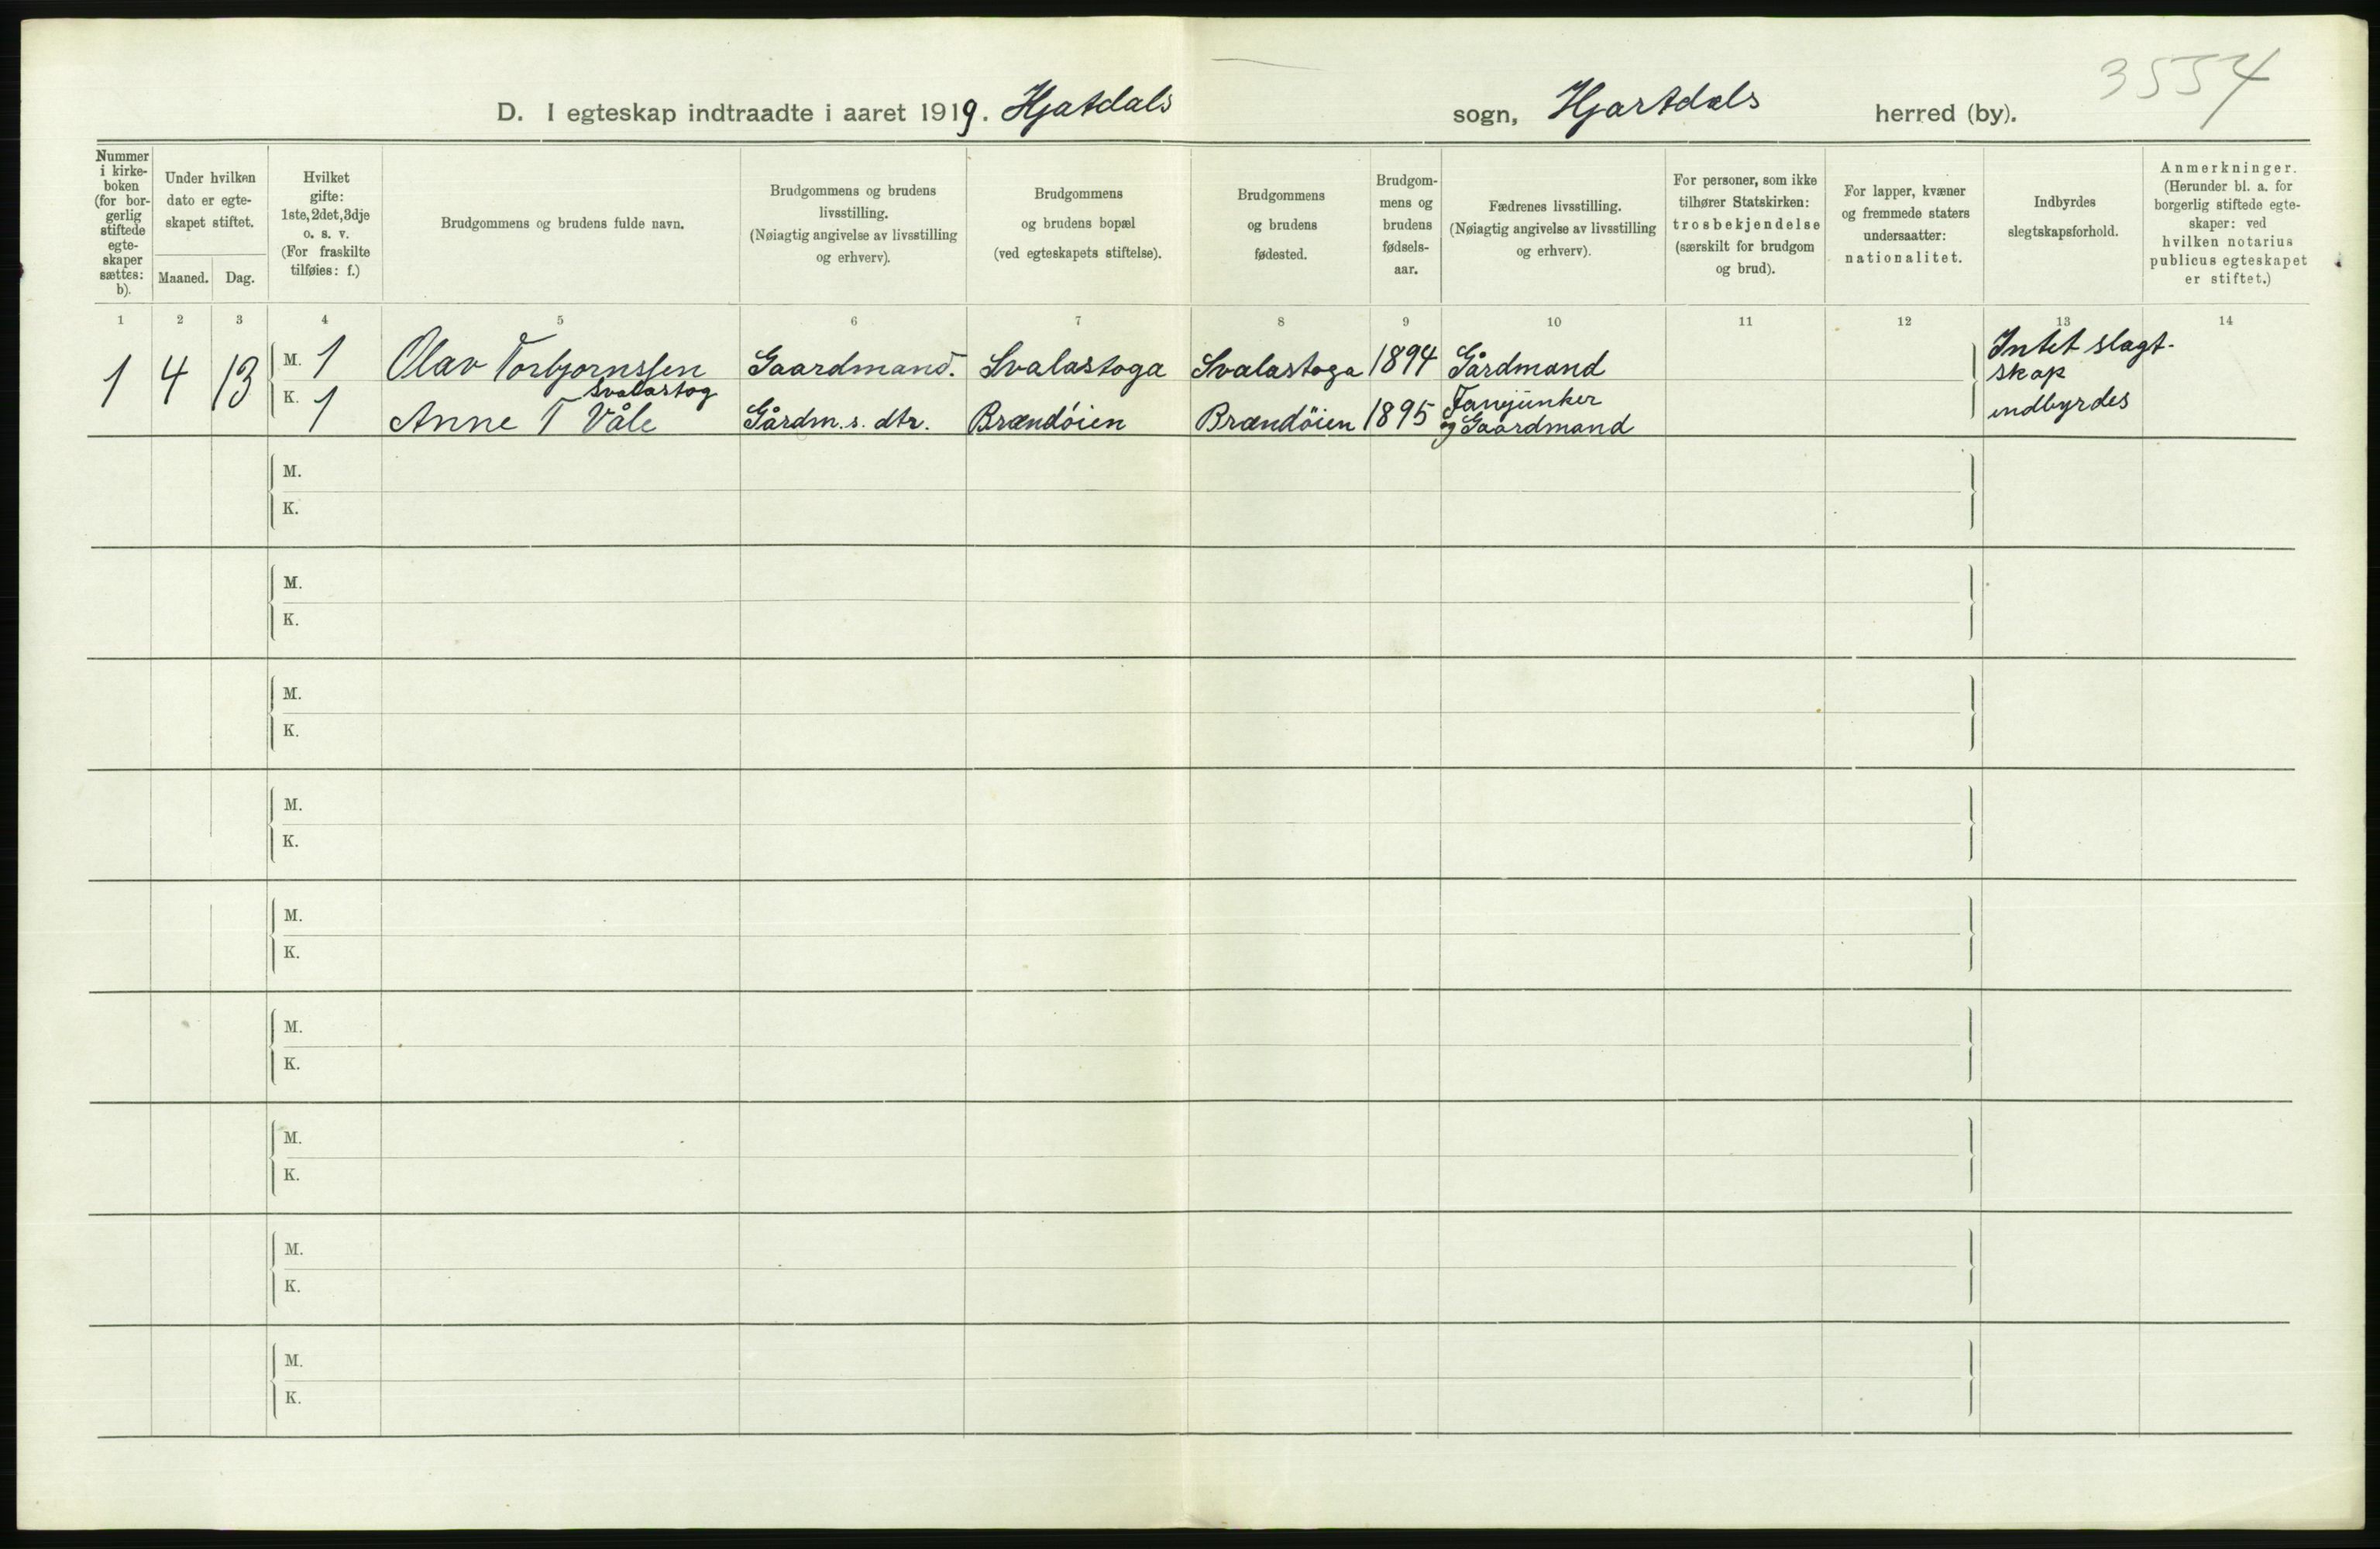 3554
D. I egteskap indtraadte i aaret 1919. Hjatdals sogn, Hjartdals herred (by).
Nummer i kirke-boken (for bor-gerlig stiftede egte-skaper sættes: b).
Under hvilken dato er egte-skapet stiftet.
Maaned. Dag.
Hvilket gifte: 1ste, 2det, 3dje o. s. v. (For fraskilte tilføies: f.)
Brudgommens og brudens fulde navn.
Brudgommens og brudens livsstilling. (Nøiagtig angivelse av livsstilling og erhverv).
Brudgommens og brudens bopæl (ved egteskapets stiftelse).
Brudgommens og brudens fødested.
Brudgom-mens og brudens fødsels-aar.
Fædrenes livsstilling. (Nøiagtig angivelse av livsstilling og erhverv).
For personer, som ikke tilhører Statskirken: trosbekjendelse (særskilt for brudgom og brud).
For lapper, kvæner og fremmede staters undersaatter: nationalitet.
Indbyrdes slegtskapsforhold.
Anmerkninger. (Herunder bl. a. for borgerlig stiftede egte-skaper: ved hvilken notarius publicus egteskapet er stiftet.)
1 2 3 4 5 6 7 8 9 10 11 12 13 14
1 4 13 M. 1 Olav Torbjornssen Svalastog Gaardmand. Svalastoga Svalastoga 1894 Gårdmand Intet slagt-skap indbyrdes
K. 1 Anne T Våle Gårdm.s. dtr. Brændöien Brændöien 1895 Fanejunker og Gaardmand
M.
K.
M.
K.
M.
K.
M.
K.
M.
K.
M.
K.
M.
K.
M.
K.
M.
K.